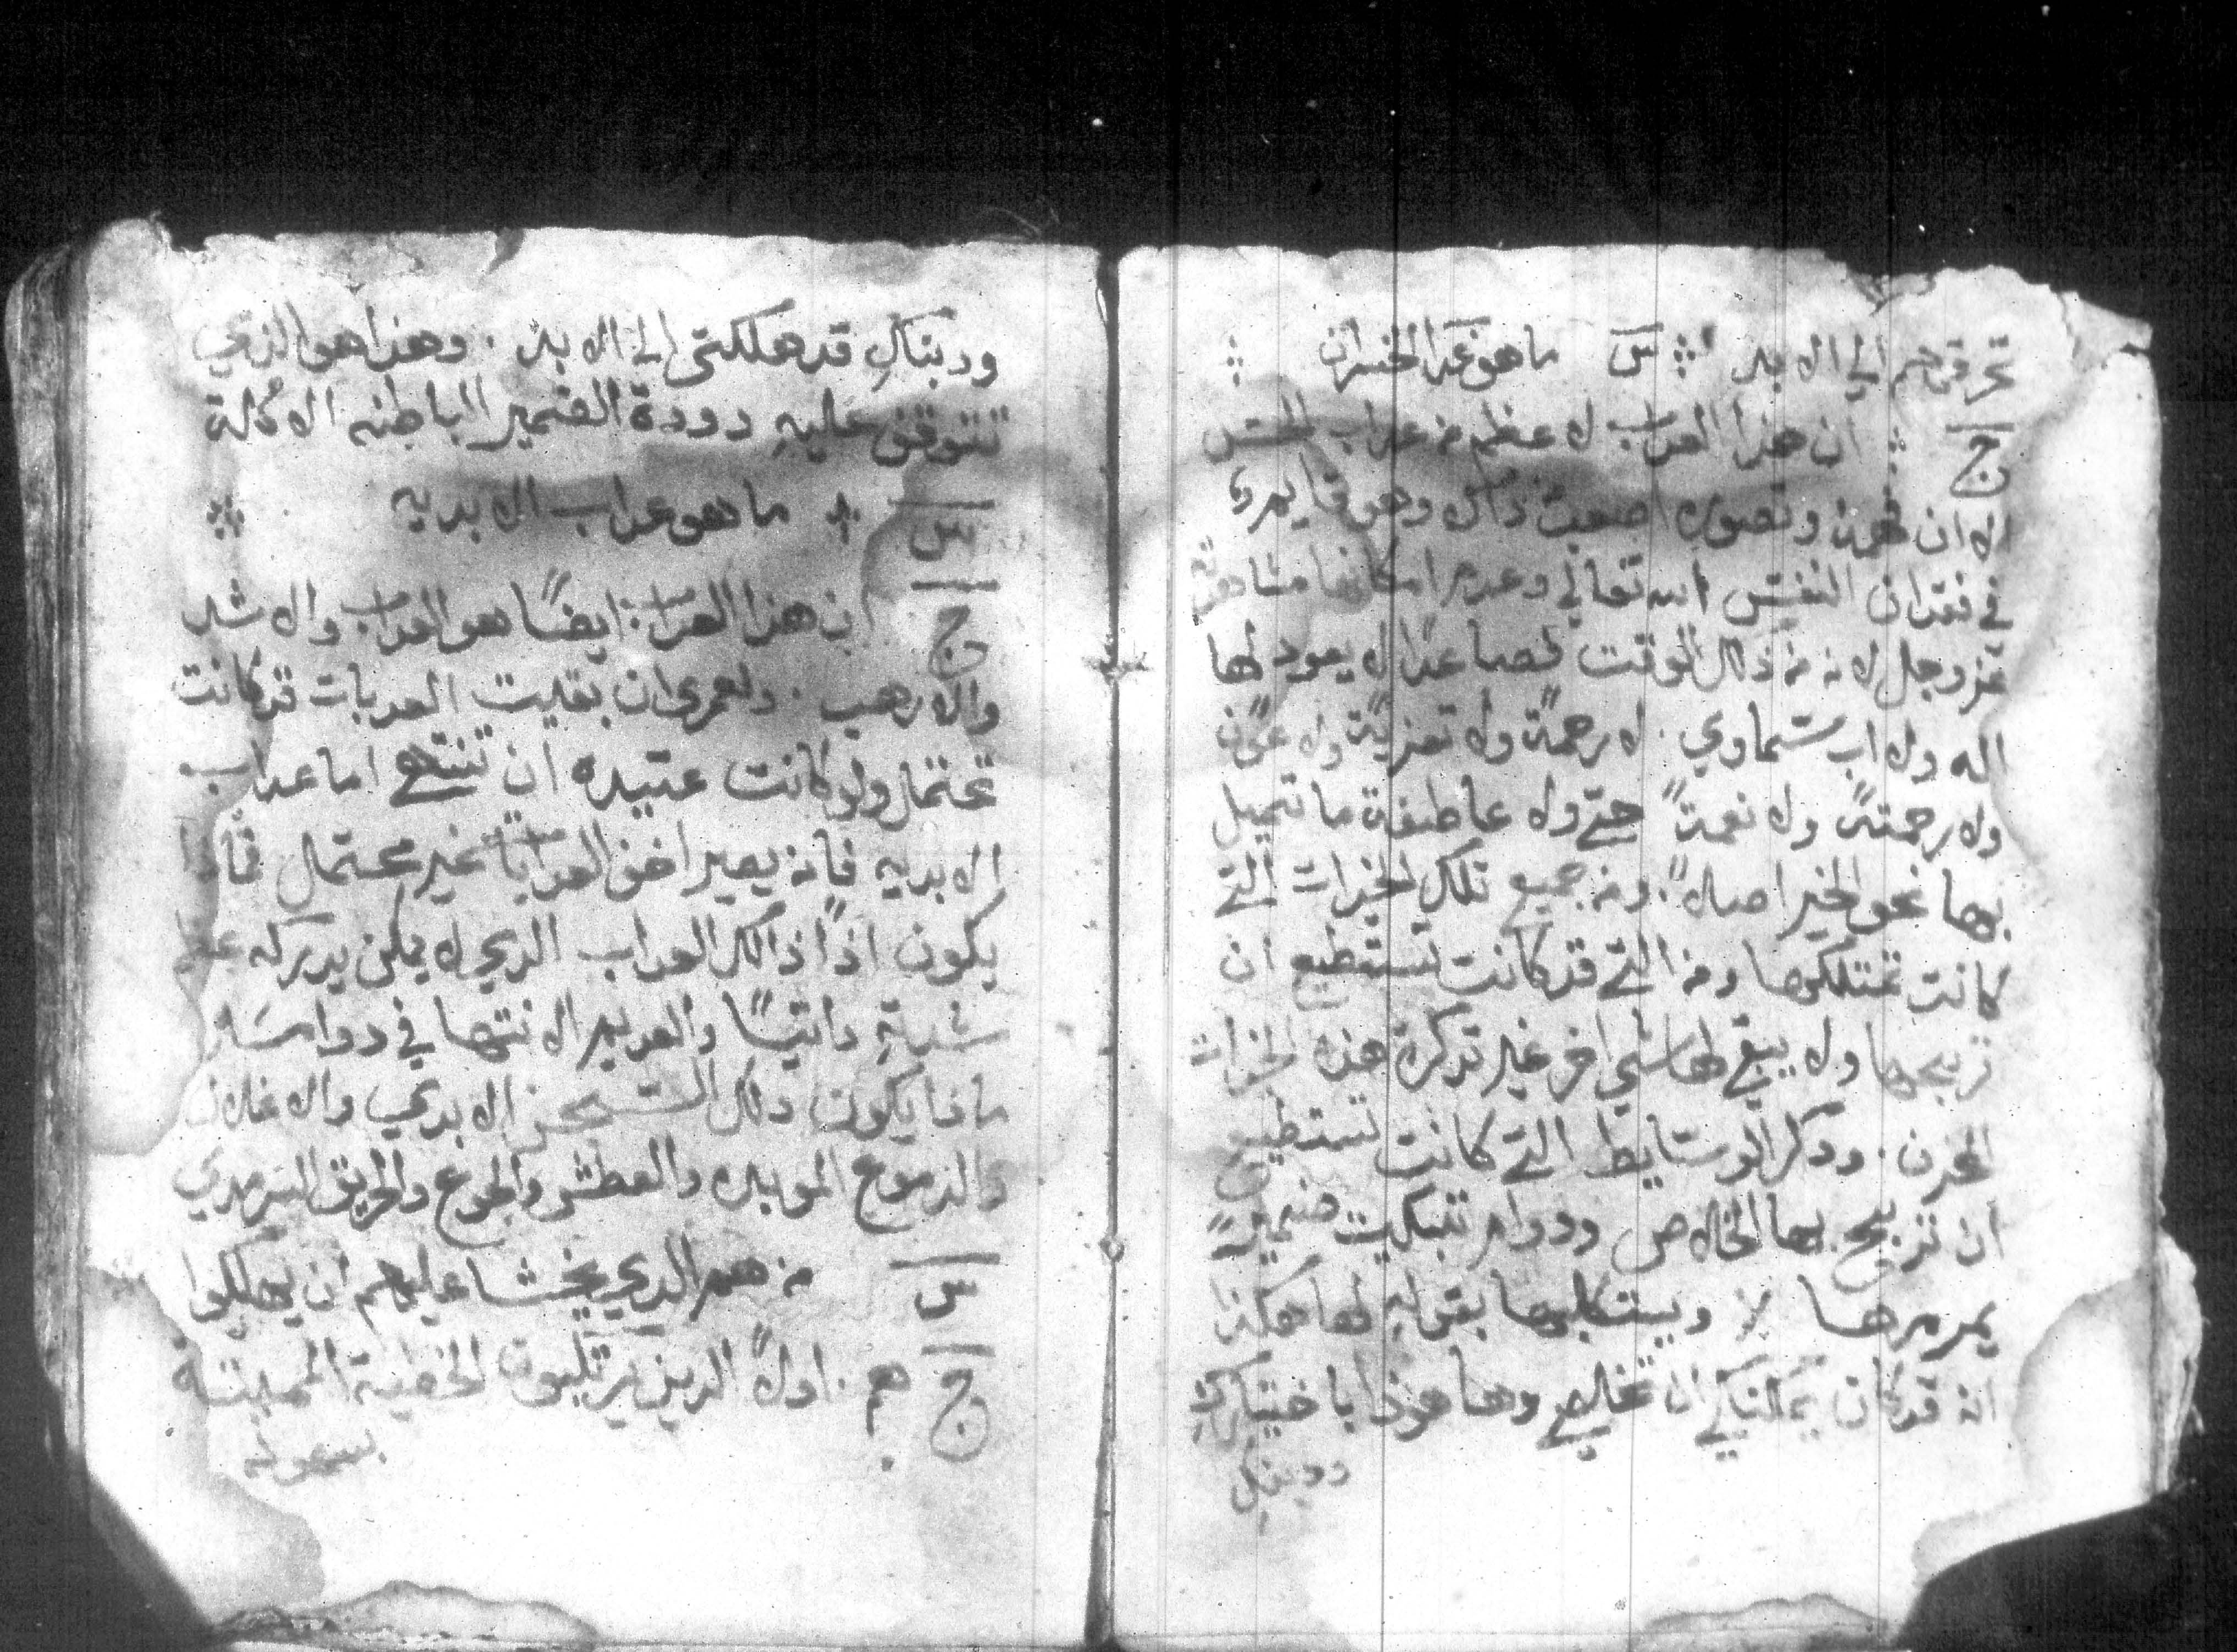 تحرقهم الي الابد ⁘ س ما هو عدا الخسران ⁘
ج ⁘ ان هذا العداب لاعظم من عداب الحس
الا ان فهمه وتصوره اصعب من ذاك وهو قايم
في فقدان النفس الله تعالي وعدم امكانها مشاهدته
عز وجل لانه من ذلك الوقت فصاعدًا لا يعود لها
اله ولا اب سماوي . لا رحمةً ولا تعزيةً ولا عونً
ولا رحمتهً ولا نعمةً حتي ولا عاطفة ما تميل
بها نحو الخير اصلاً . ومن جميع تلك الخيرات التي
كانت تمتلكها ومن التي قد كانت تستطيع ان
تربحها ولا يبقي لها شي اخر غير تدكرة هذه الخيرات
المحزن . ودكر الوسايط التي كانت تستطيع
ان تربح بها الخلاص ودوام تبكيت ضمير
يمرمرها لا ويبتكلها بقوله لها هكذا
انه قد كان يمكنكي ان تخلصي وها هوذا باختياركِ
ودبنكِ
ودبنكِ قد هلكتي الي الابد . وهذا هو الذي
تتوقف عليهِ دودة الضمير الباطنه الاكالة
س ⁘ ما هو عداب الابديه ⁘
ج ان هذا العداب ايضًا هو العداب والاشد
والارهب . ولعمري ان بقيت العدبات قد كانت
تحتمل ولو كانت عتيده ان تنتهي اما عداب
الابديه فانه يصير اخف العدابات غير محتمل فماذا
يكون اذًا ذالك العداب الدي لا يمكن يدركه
شبيهِ داتيًا والعديم الانتها في دوامه
مادا يكون دلك السجن الابدي والاغلال
والدموع الموبده والعطش والجوع والحريق السرمدي
س من هم الدي يخشا عليهم ان يهلكوا
ج هم . اولاً الدين يرتكبون الخطية المميتة
بسهوله